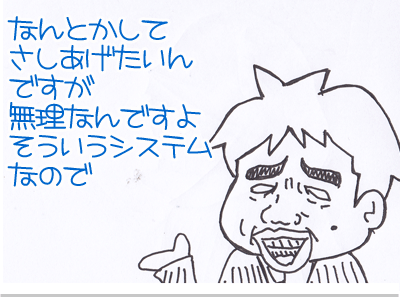 なんとかして
さしあげたいん
ですが
無理なんですよ
そういうシステム
なので